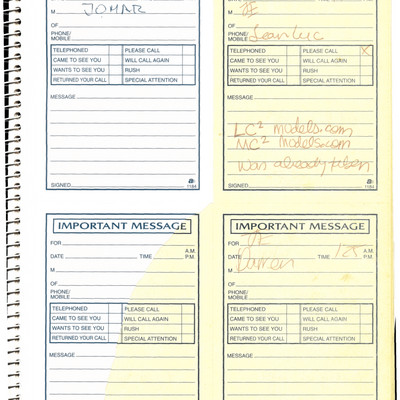 M JOMAR
OF
PHONE/
MOBILE
TELEPHONED PLEASE CALL
CAME TO SEE YOU WILL CALL AGAIN
WANTS TO SEE YOU RUSH
RETURNED YOUR CALL SPECIAL ATTENTION
MESSAGE
SIGNED
1184
M JE
OF
PHONE/
MOBILE Jean Luc
TELEPHONED PLEASE CALL X
CAME TO SEE YOU WILL CALL AGAIN
WANTS TO SEE YOU RUSH
RETURNED YOUR CALL SPECIAL ATTENTION
MESSAGE
LC² models.com
MC² models.com
was already taken
SIGNED
1184
IMPORTANT MESSAGE
FOR
A.M.
DATE TIME P.M.
M
OF
PHONE/
MOBILE
TELEPHONED PLEASE CALL
CAME TO SEE YOU WILL CALL AGAIN
WANTS TO SEE YOU RUSH
RETURNED YOUR CALL SPECIAL ATTENTION
MESSAGE
IMPORTANT MESSAGE
FOR JE
A.M.
DATE TIME P.M.
M Darren
OF
PHONE/
MOBILE
TELEPHONED PLEASE CALL
CAME TO SEE YOU WILL CALL AGAIN
WANTS TO SEE YOU RUSH
RETURNED YOUR CALL SPECIAL ATTENTION
MESSAGE